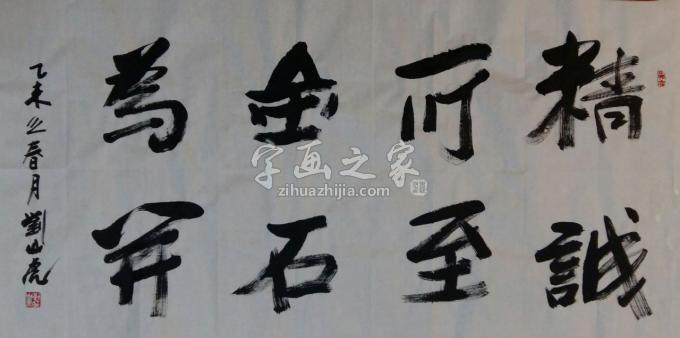 精誠
所至
金石
為開
乙未之春月劉山虎
字画之家
zihuazhijia.com